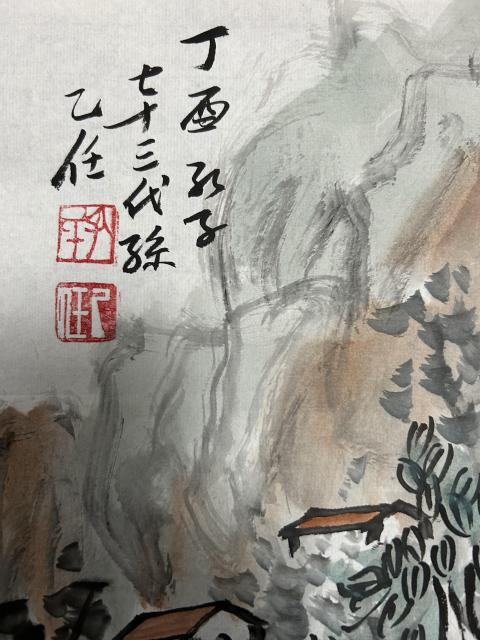 丁酉 孔子
七十三代孫
乙任